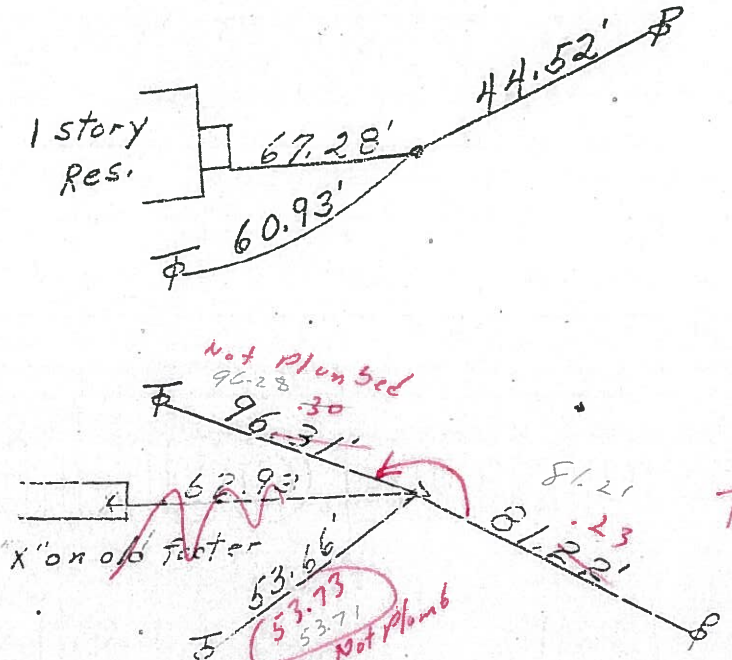 44.52'
1 story
Res.
67.28'
60.93'
Not Plumbed
96.28
.30
96.31'
62.93'
81.21
.23
81.22'
"X" on old footer
53.66'
53.73
53.71
Not Plumb